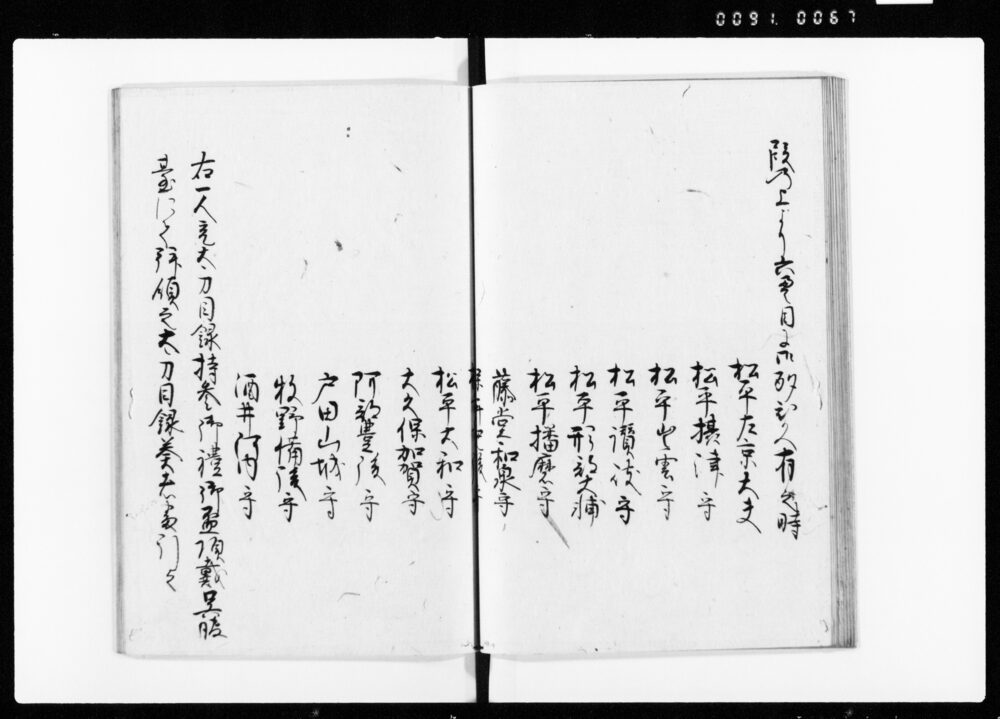 0091. 0067
段乃上より 目ニ御 有之時
松平左京大夫
松平摂津守
松平出雲守
松平讃岐守
松平刑部大輔
松平播磨守
藤堂和泉守
松平大和守
大久保加賀守
阿部豊後守
戸田山城守
牧野備後守
酒井河内守
右一人充太刀目録持参御禮御盃頂戴呉服
臺にて拝領之太刀目録 引之